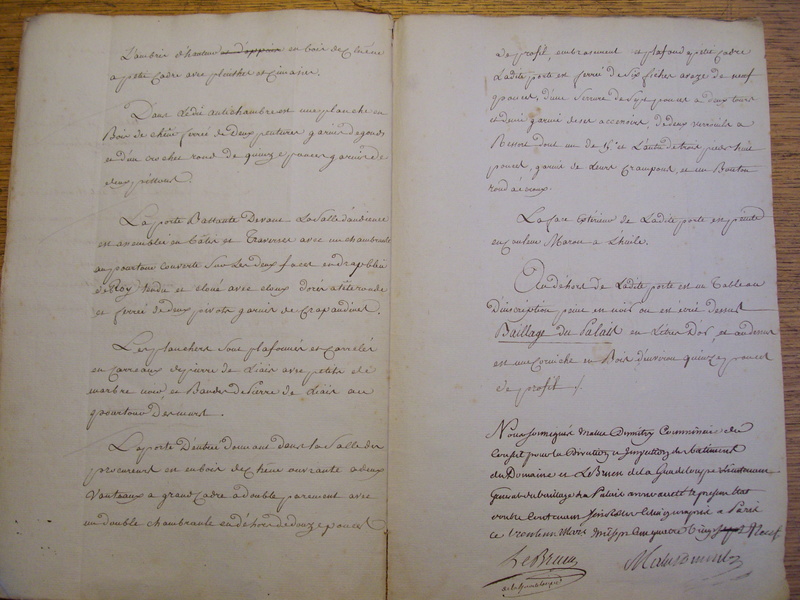 Lambris d'hauteur d'appuy en bois de chêne
a petit cadre avec plinthe et cimaise.
Dans ledit antichambre est une planche en
Bois de chêne ferrée de deux pentures garnie de gonds
et d'un crochet rond de quinze pouces garnis de
deux pittons.
La porte Battante Devant La Salle d'audience
est assemblée en Batis et Traverses avec un chambranle
au pourtour couverte sur les deux faces en drap bleu
de Roy tendu et cloué avec cloux dorés a tête ronde
et ferrée de deux pivots garnis de Crapaudines.
Les planchers sont plafonnés et carrelés
en carreaux de pierre de Liais avec petits de
marbre noir, et Bandes de Pierre de Liais au
pourtour des murs.
La porte D'entrée donnant dans la Salle des
procureurs est en bois de chêne ouvrante a deux
Vantaux a grand cadre a double parement avec
un double chambranle en déhors de douze pouces
de profil, embrasement et plafond a petit cadre
Ladite porte est ferrée de six fiches avaze de neuf
pouces, d'une Serrure de Six pouces a deux tours
et demie garnie de ses accessoirs, de deux verrouils a
Ressort dont un de 15 et L'autre de trois pieds huit
pouces, garnis de leurs Crampons, et un Bouton
rond avec
La face Extérieur de Ladite porte est peinte
en couleur Maron a L'huile.
Au déhors de Ladite porte est un Tableau
D'inscription peint en noir ou est écrit dessus
Bailliage du Palais en Lettres D'or, et au dessus
est une Corniche en Bois d'environ quinze pouces
de profil /.
Nous soussignés Commissaire du
Conseil pour la Direction et Inspection des Batiments
du Domaine et LeBrun de la Guadeloupe Lieutenant
General du bailliage du Palais avons arrêté le present état
contenant a Paris
ce trente un Mars mil sept cent quatre vingt sept Neuf
LeBrun
de la Guadeloupe